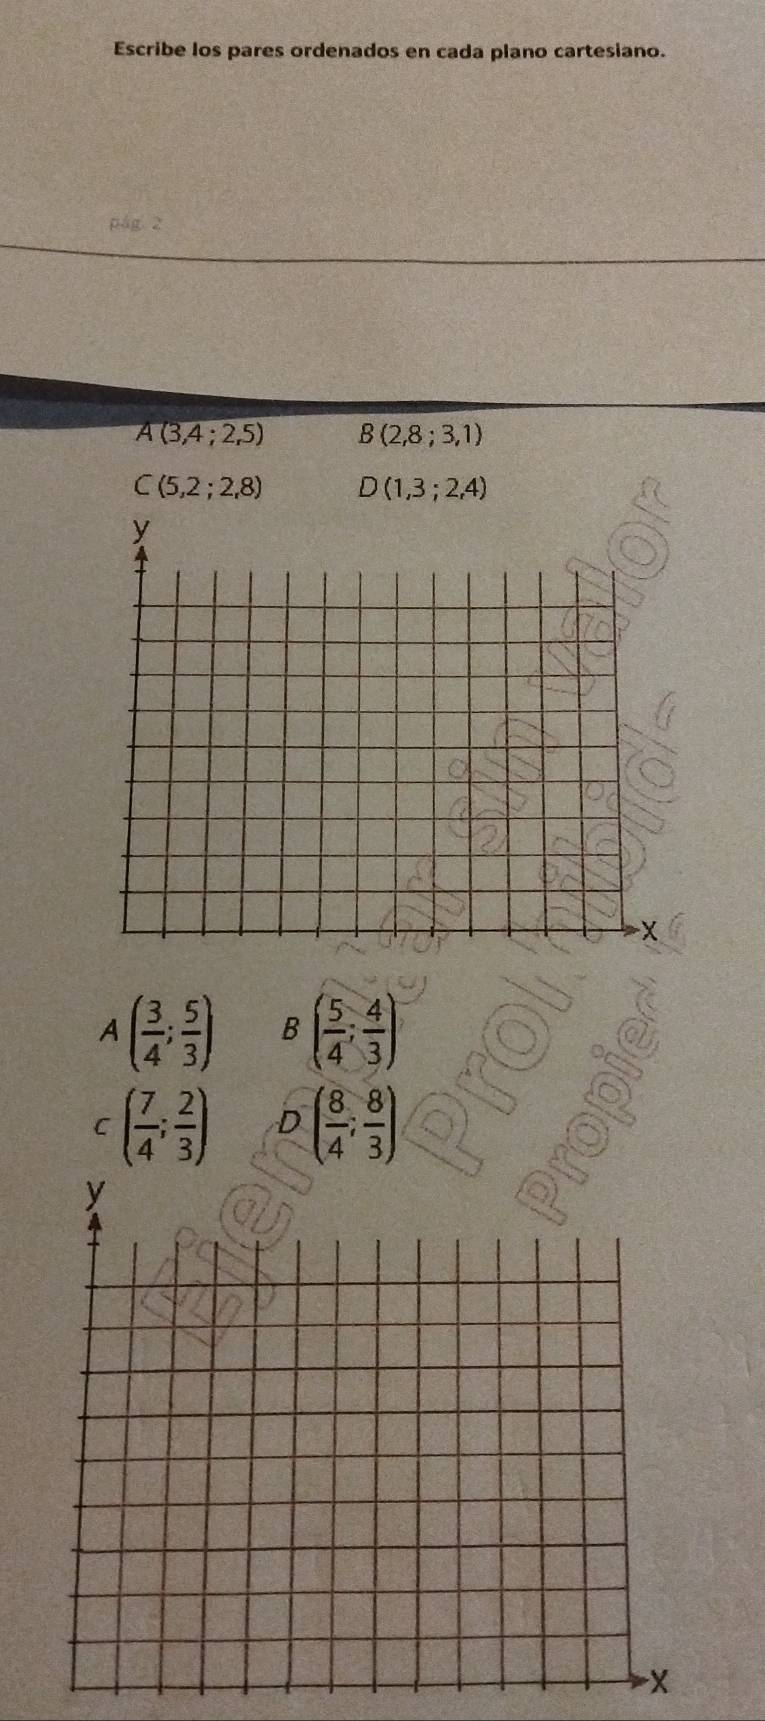 Escribe los pares ordenados en cada plano cartesiano.
pág. 2
A (3,4 ; 2,5) B (2,8 ; 3,1)
C (5,2 ; 2,8) D (1,3 ; 2,4)
y
x
A (3/4 ; 5/3) B (5/4 ; 4/3)
C (7/4 ; 2/3) D (8/4 ; 8/3)
y
x
Ejemplar sin valor